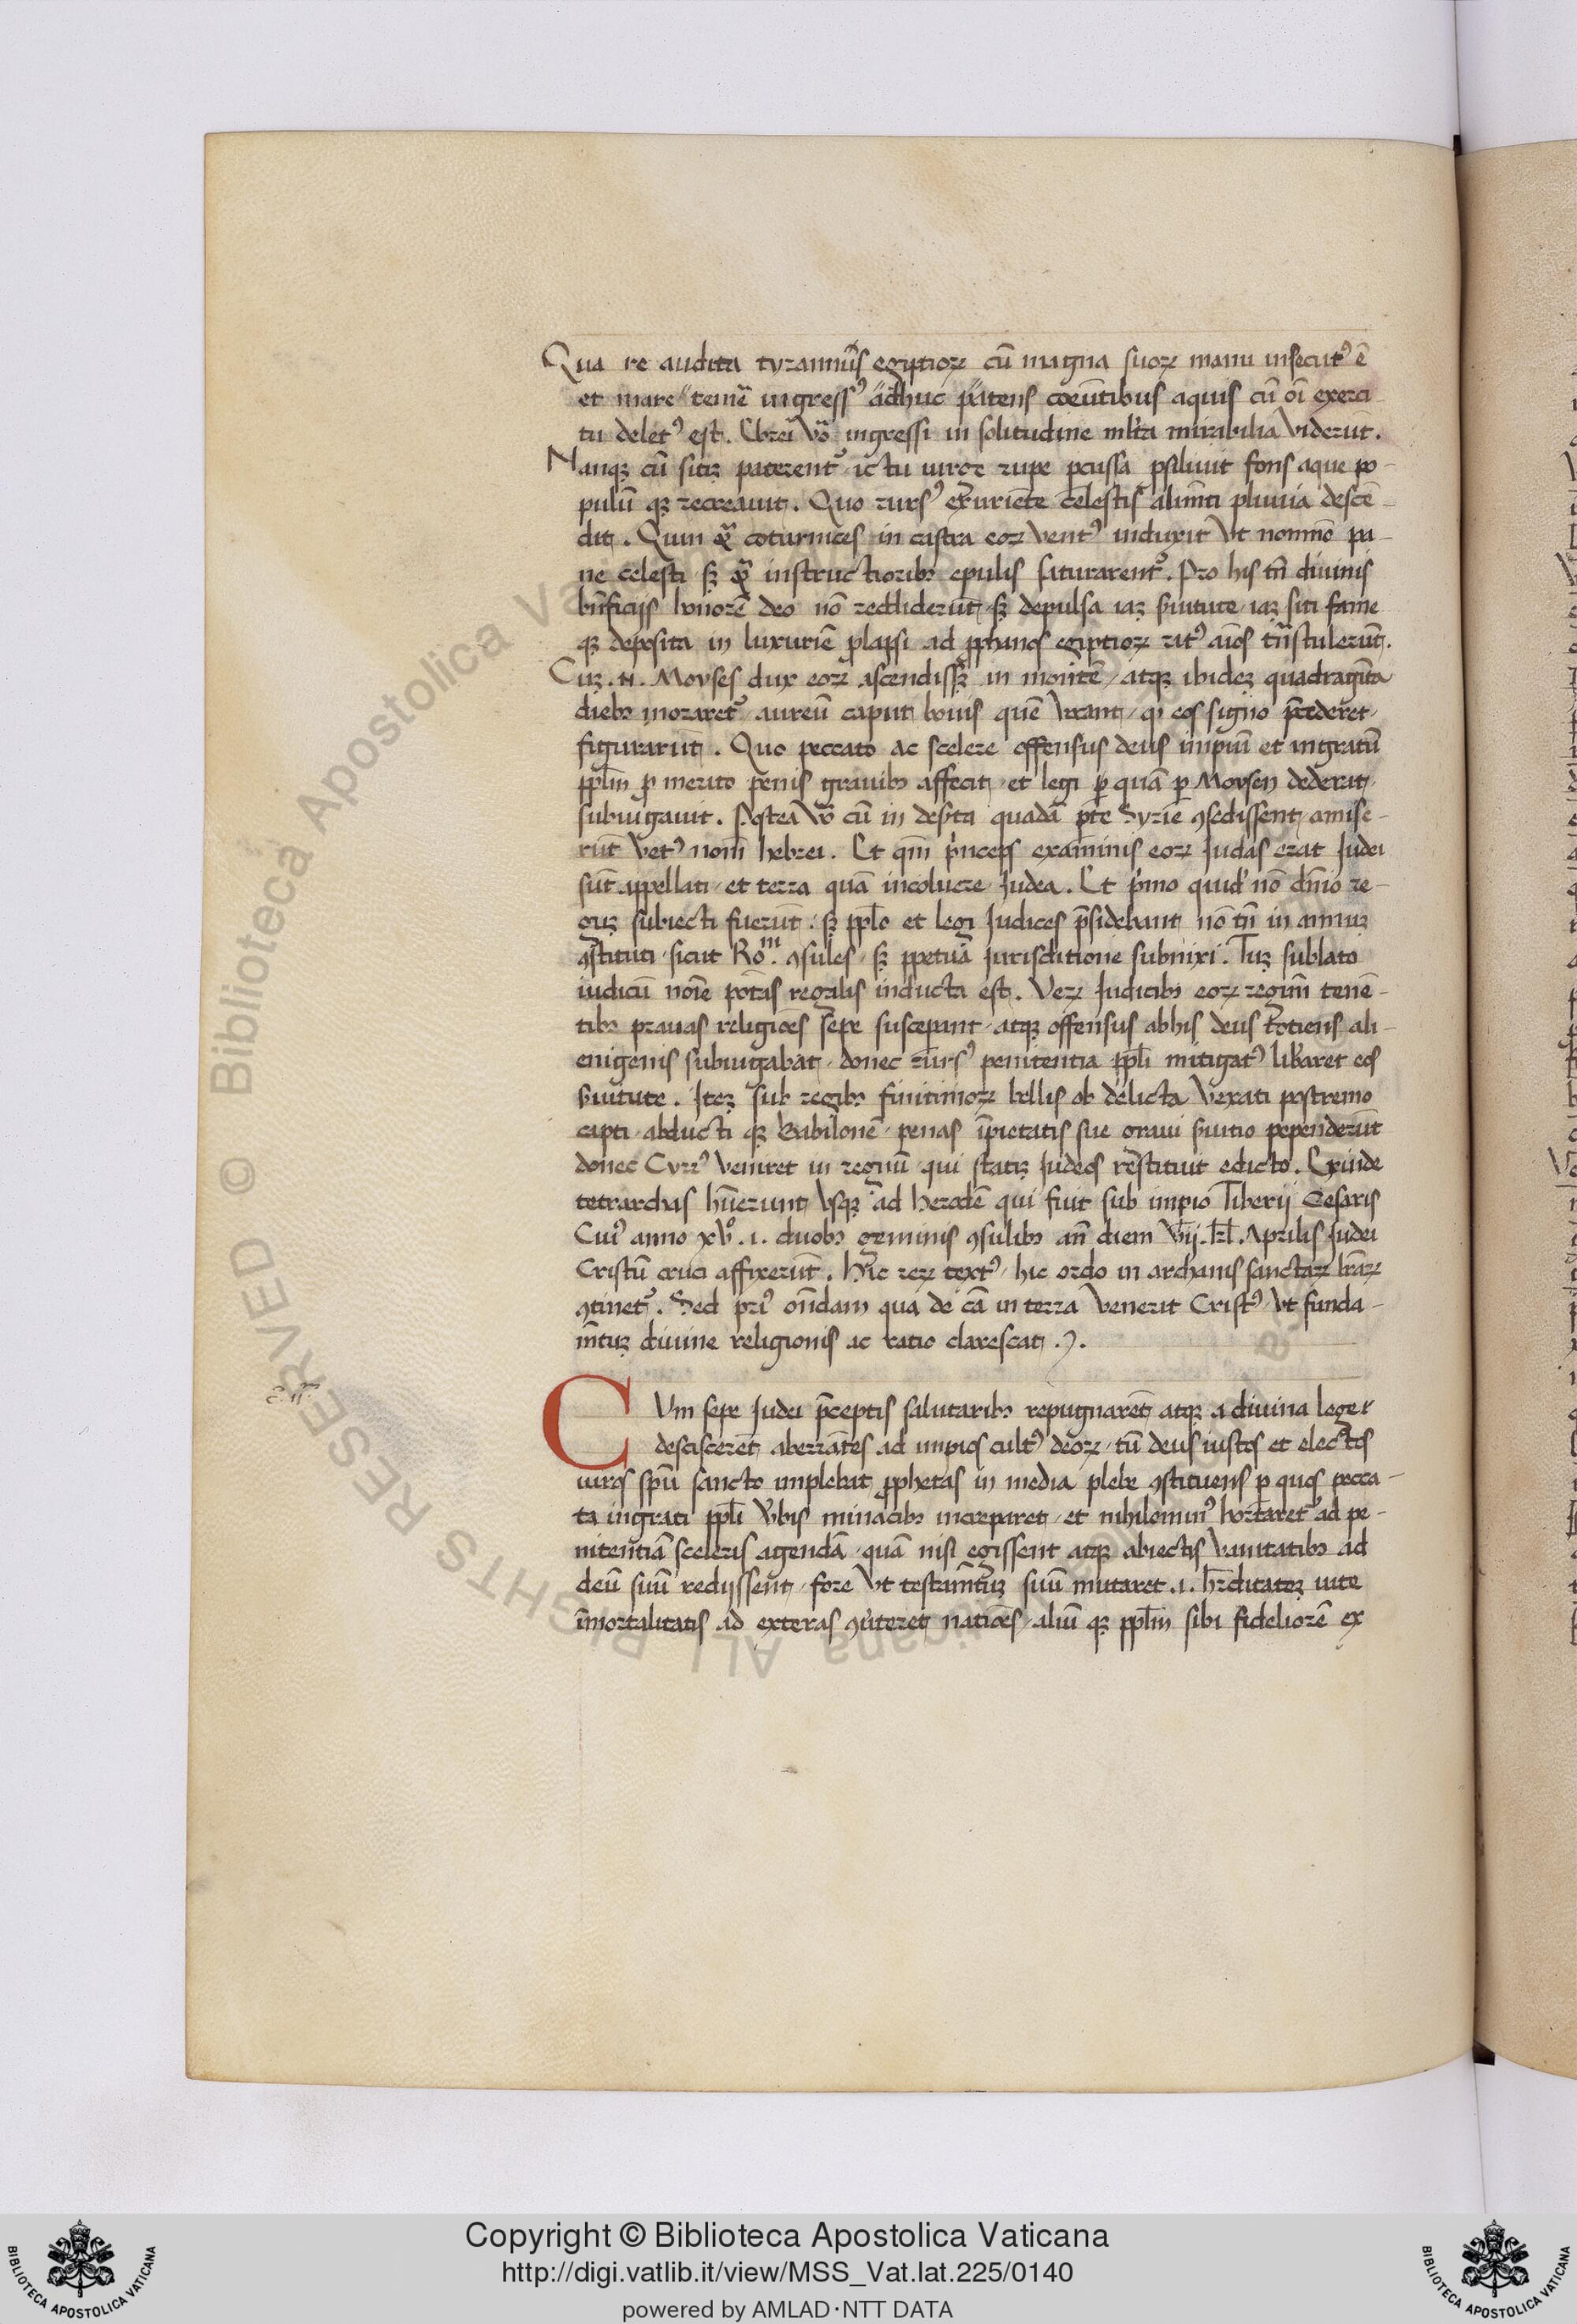 Qua re audita tyrannus egiptioꝝ cū magna suoꝝ manu insecut᷒ ē
et mare temē ingress᷒ adhuc patens coeūtibus aquis cū oī exerci
tu delet᷒ est. Ebrei v̄o ingressi in solitudinē ml̄ta mirabilia viderūt.
Nanqꝫ cū sitiꝫ paterent᷒ ictu uirge rupe ꝑcussa ꝓsiluit fons aque po-
pulū qꝫ recreauit. Quo rurs᷒ exuriēte celestis alimēti pluuia descē-
dit. Quin & coturnices in castra eoꝝ vent᷒ induxit vt non mō pa-
ne celesti sꝫ & instructioribꝰ epulis saturarent᷒. Pro his tn̄ diuinis
bn̄ficijs honorē deo nō reddiderūt sꝫ depulsa iaꝫ ẜuitute iaꝫ siti fame
qꝫ deposita in luxuriē prolapsi ad ꝓphanos egiptioꝝ rit᷒ aīos trāstulerūt.
Cuꝫ .n. Moyses dux eoꝝ ascendissꝫ in montē atqꝫ ibideꝫ quadragīta
diebꝰ moraret᷒ aureū caput bouis quē vocant qi eos signo p̄cederet
figurarūt. Quo peccato ac scelere offensus deus impiū et ingratū
pplm̄ ꝓ merito penis grauibꝰ affecit et legi ꝑ quā ꝑ Moysen dederat
subiugauit. Postea v̄o cū in deẜta quadā ꝑte Syrie ꝯsedissent amise-
rūt vet᷒ nom̄ hebrei. Et qm̄ pͥnceps examinis eoꝝ Iudas erat Iudei
sūt appellati et terra quā incoluere Iudea. Et pͥmo quid' nō dn̄io re-
guꝫ subiecti fuerūt sꝫ pplo et legi Iudices p̄sidebant nō tn̄ in annuꝫ
ꝯstituti sicut Roᵐ. ꝯsules sꝫ ꝑpetua Iurisditione subnixi. Tuꝫ sublato
iudicū noīe potās regalis inducta est. Veꝝ Iudicibꝰ eoꝝ regim̄ tenē-
tibꝰ prauas religiōes sepe susceperunt atqꝫ offensus ab his deus totiens ali-
enigenis subiugabat donec rurs᷒ penitentia ppli mitigat᷒ libaret eos
ẜuitute. Iteꝫ sub regibꝰ finitimoꝝ bellis ob delicta vexati postremo
capti abducti qꝫ Babilonē penas īpietatis sue graui ẜuitio pependerūt
donec Cyr᷒ veniret in regnū qui statiꝫ Iudeos restituit edicto. Exinde
tetrarchas hūerunt vsqꝫ ad Herodē qui fuit sub impio Tiberij Cesaris
Cui᷒ anno xv°.i. duobꝰ geminis ꝯsulibꝰ an̄ diem vij. kl. Aprilis Iudei
Cristū cruci affixerūt. Hic reꝝ text᷒ hic ordo in archanis sanctaꝝ lr̄aꝝ
ꝯtinet᷒. Sed pri᷒ on̄dam qua de cā in terra venerit Crist᷒ vt funda-
mn̄tuꝫ diuine religionis ac ratio clarescat.
Cum sepe Iudei p̄ceptis salutaribꝰ repugnarēt atqꝫ a diuina lege
desciscerēt aberrātes ad impios cult᷒ deoꝝ tū deus iustos et electos
uiros spū sancto implebat ꝓphetas in media plebe ꝯstituens ꝑ quos pecca-
ta ingrati ppli v̄bis minacibꝰ increparet et nihilomin᷒ hortaret᷒ ad pe-
nitentiā sceleris agendā quā nisi egissent atqꝫ abiectis vanitatibꝰ ad
deū suū redijssent fore vt testamn̄tuꝫ suū mutaret .i. hr̄ditateꝫ uite
īmortalitatis ad exteras ꝯuerteret natiōes aliū qꝫ pplm̄ sibi fideliorē ex
Copyright © Biblioteca Apostolica Vaticana
http://digi.vatlib.it/view/MSS_Vat.lat.225/0140
powered by AMLAD·NTT DATA
BIBLIOTECA APOSTOLICA VATICANA
BIBLIOTECA APOSTOLICA VATICANA